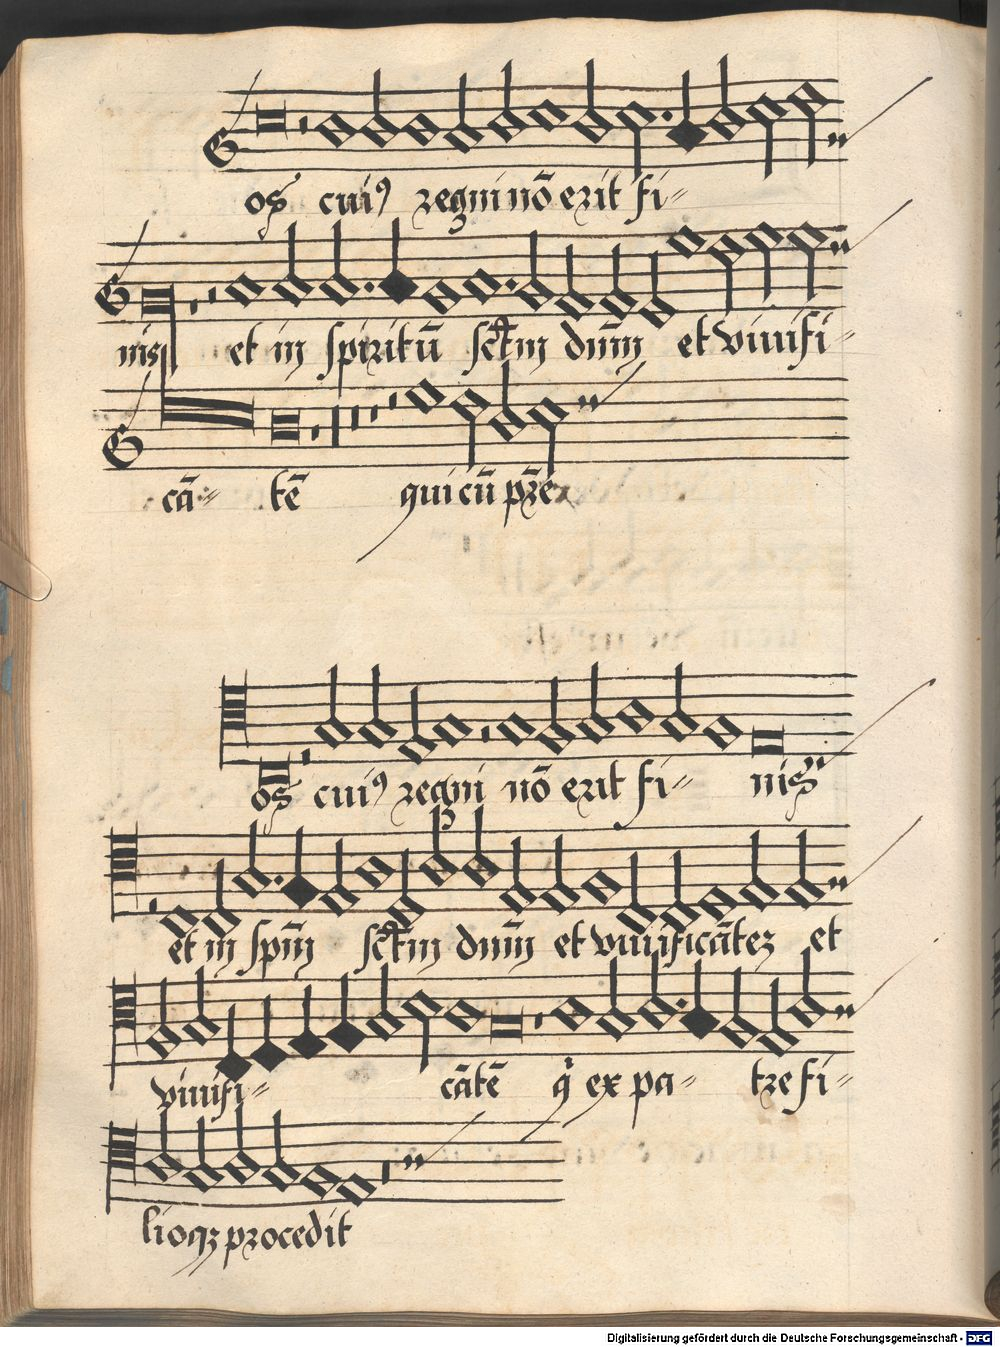 os cuiꝰ regni nō erit fi⸗
nis et in spiritū sc̄tm dn̄m et vivifi⸗
cā⸗ tē qui cū pr̄e
os cuiꝰ regni nō erit fi⸗ nis
et in spm̄ sc̄tm dnm̄ et vivificātez et
vivifi⸗ cātē q̇ ex pa⸗ tre fi⸗
lioqꝫ procedit
Digitalisierung gefördert durch die Deutsche Forschungsgemeinschaft - DFG